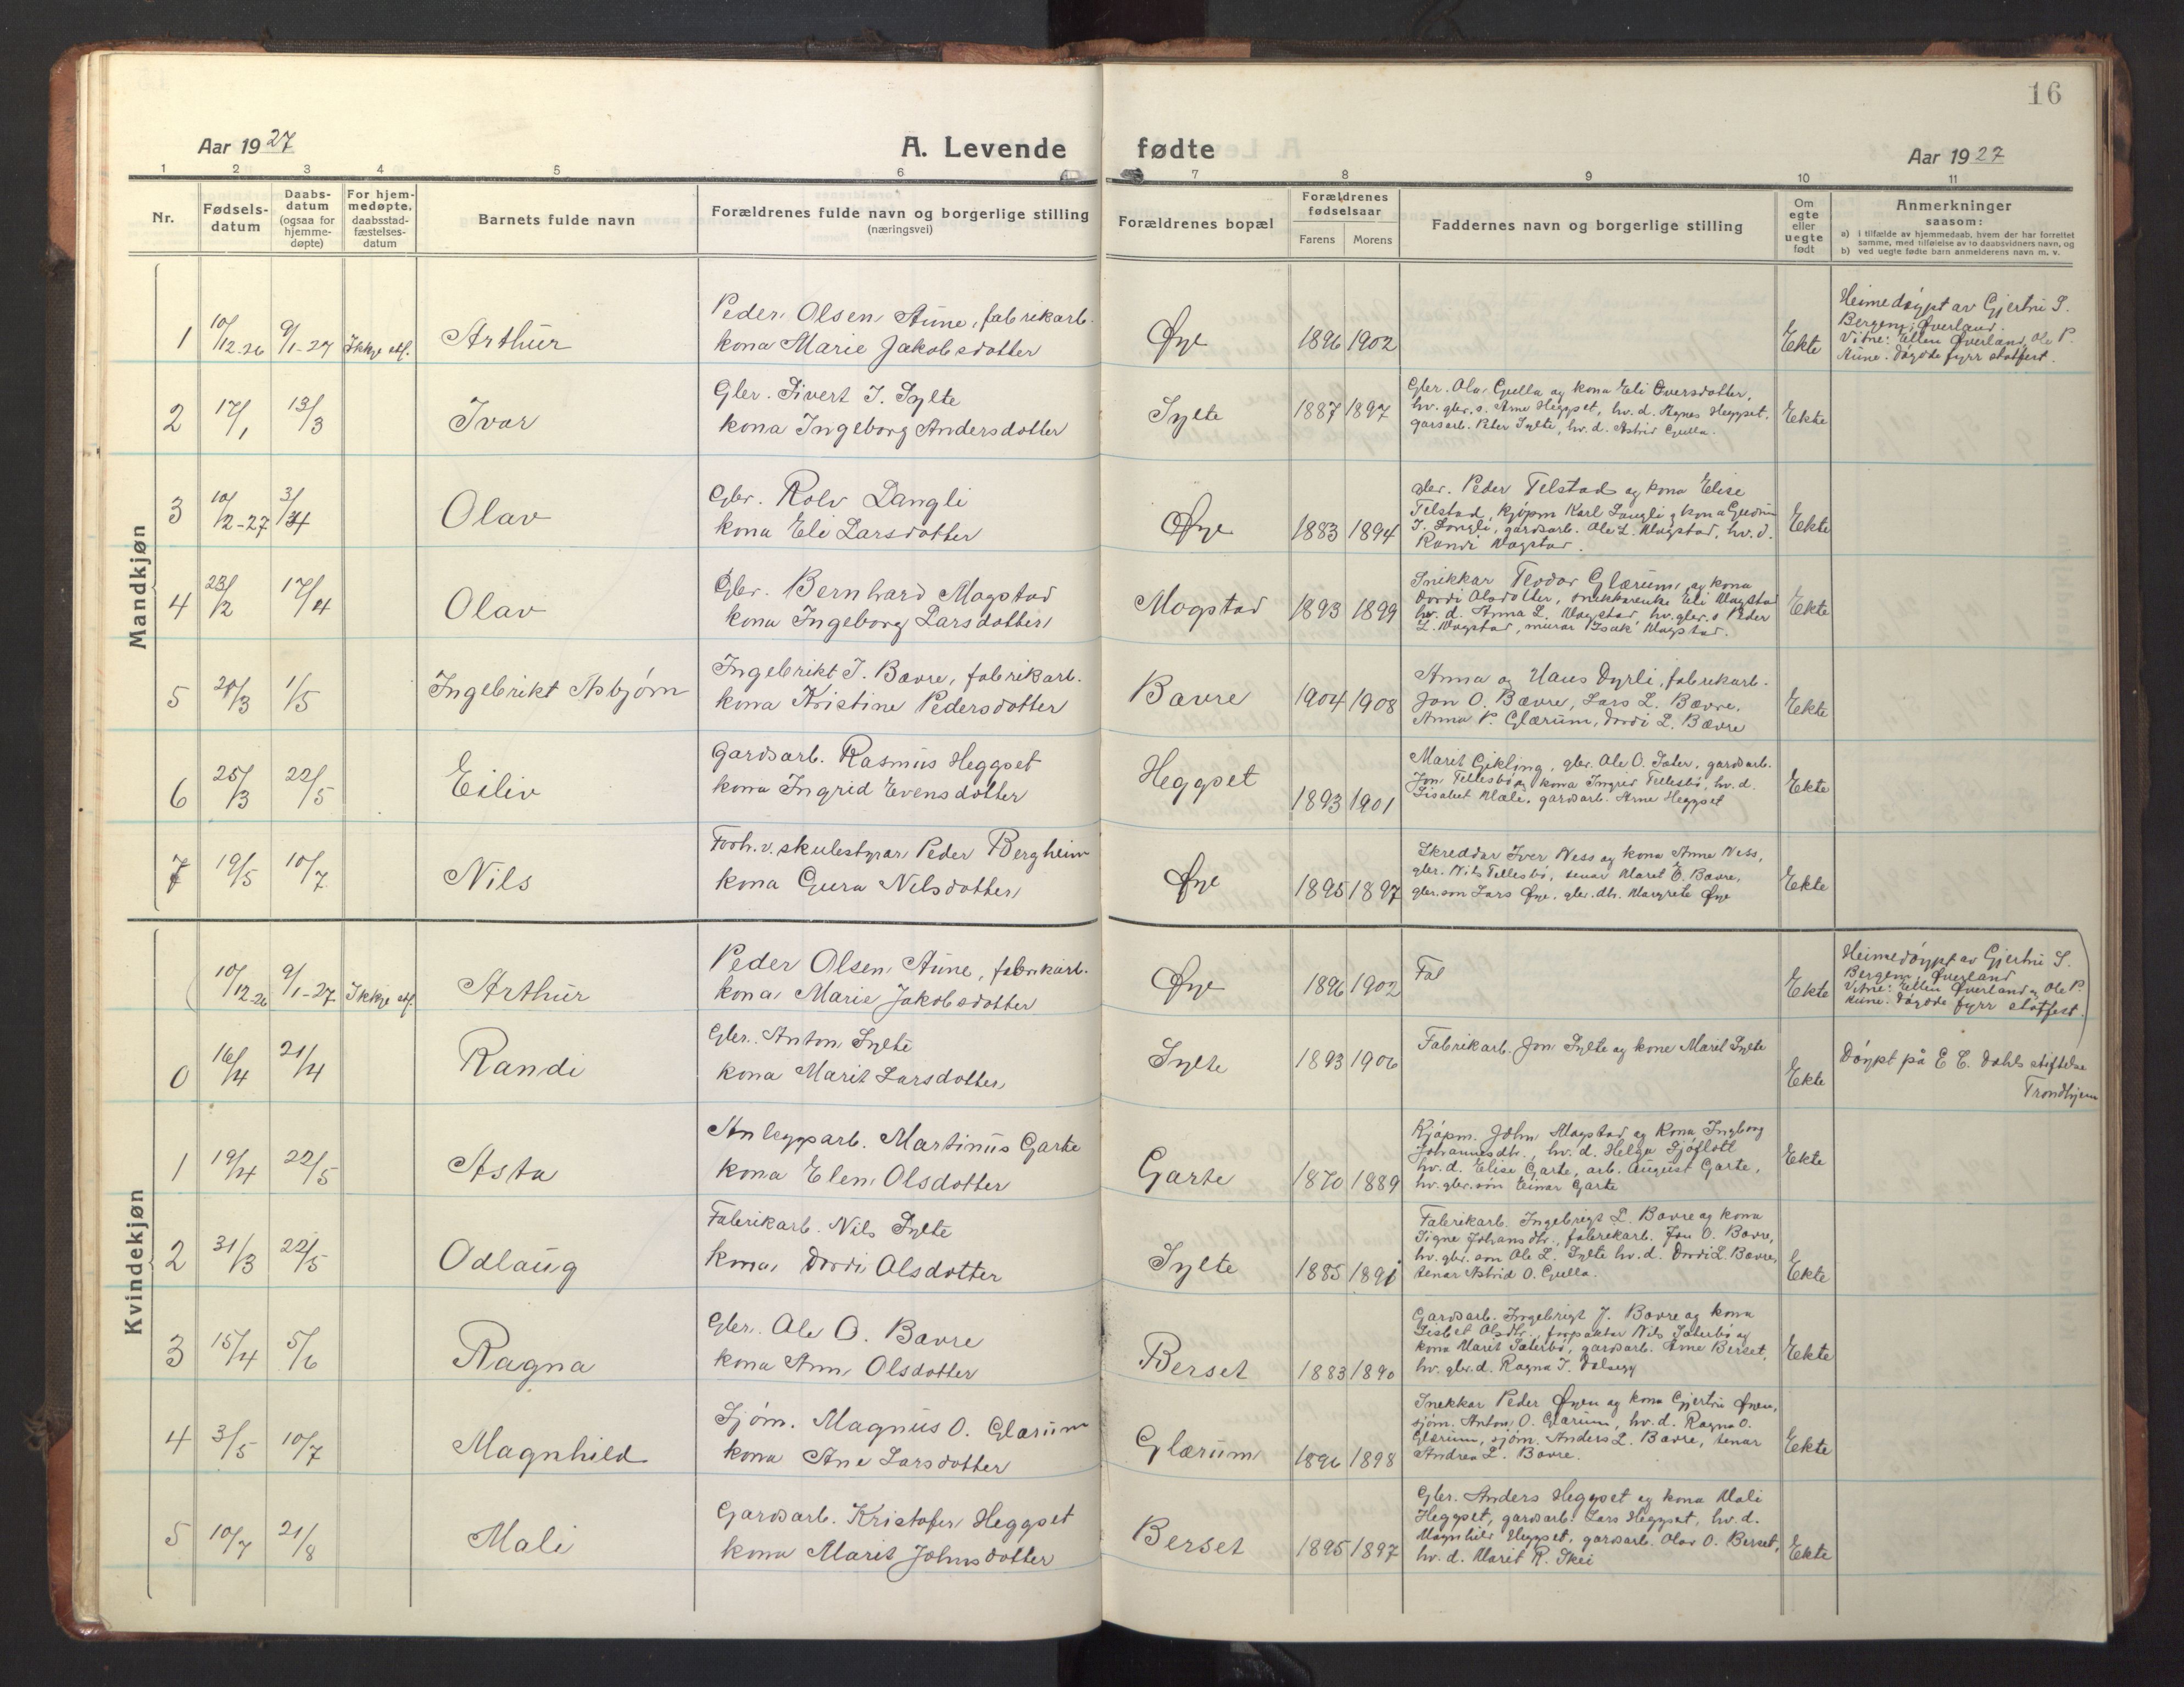 16
Aar 1927
A. Levende fødte
Aar 1927
1 2 3 4 5 6 7 8 9 10 11
Nr.
Fødsels-
datum
Daabs-
datum
(ogsaa for
hjemme-
døpte)
For hjem-
medøpte,
daabsstad-
fæstelses-
datum
Barnets fulde navn
Forældrenes fulde navn og borgerlige stilling
(næringsvei)
Forældrenes bopæl
Forældrenes
fødselsaar
Farens Morens
Faddernes navn og borgerlige stilling
Om
egte
eller
uegte
født
Anmerkninger
saasom:
a) i tilfælde av hjemmedaab, hvem der har forrettet
samme, med tilføielse av to daabsvidners navn, og
b) ved uegte fødte barn anmelderens navn m. v.
Mandkjøn
1 10/12-26 9/1-27 Ikkje stf. Arthur
Peder Olsen Aune, fabrikarb.
kona Marie Jakobsdotter
Øye 1896 1902
Ekte
Heimedøypt av Gjertru S.
Bergem, Øverland.
Vitne: Ellen Øverland, Ole P.
Aune. Døydde fyrr statfest.
2 17/1 13/3 Ivar
Gbr. Sivert I. Sylte
kona Ingeborg Andersdotter
Sylte 1887 1897
Gbr. Ola Gulla og kona Eli Oversdotter,
hv. gbr. s. Arne Heggset, hv. d. Agnes Heggset,
garsarb. Peter Sylte, hv. d. Astrid Gulla.
Ekte
3 10/2-27 3/4 Olav
Gbr. Rolv Langli
kona Eli Larsdotter
Øye 1883 1894
Gbr. Peder Telstad og kona Elise
Telstad, kjøpm Karl Langli og kona Gudrun
J. Langli, gardsarb. Ole L. Mogstad, hv. d.
Randi Mogstad.
Ekte
4 23/2 17/4 Olav
Gbr. Bernhard Mogstad
kona Ingeborg Larsdotter
Mogstad 1893 1899
Snikkar Teodor Glærum og kona
Dordi Olsdotter, snikkarenke Eli Mogstad
hv. d. Anna L. Mogstad, hv. gbr. s Peder
L. Mogstad, murar Isak Mogstad.
Ekte
5 20/3 1/5 Ingebrikt Asbjørn
Ingebrikt J. Bævre, fabrikarb.
kona Kristine Pedersdotter
Bævre 1904 1908
Anna og Hans Dyrli, fabrikarb.
Jon O. Bævre, Lars L. Bævre,
Anna P. Glærum, Dordi L. Bævre
Ekte
6 25/3 22/5 Eiliv
Gardsarb. Rasmus Heggset
kona Ingrid Evensdotter
Heggset 1893 1901
Marit Gikling, gbr. Ole O. Sæter, gardsarb.
Jon Tellesbø og kona Ingrid Tellesbø, hv. d.
Lisabet Mæle, gardsarb. Arne Heggset
Ekte
7 19/5 10/7 Nils
Forh. v. skulestyrar Peder Bergheim
kona Guru Nilsdotter
Øye 1895 1897
Skreddar Iver Ness og kona Anne Ness,
gbr. Nils Tellesbø, tenar Maret E. Bævre,
gbr. son Lars Øye, gbr. dtr. Margrete Øye
Ekte
Kvindekjøn
( 10/12-26 9/1-27 Ikkje stf. Arthur
Peder Olsen Aune, fabrikarb.
kona Marie Jakobsdotter
Øye 1896 1902
Fal
Ekte
Heimedøypt av Gjertru S.
Bergem, Øverland
Vitne: Ellen Øverland og Ole P.
Aune. Døydde fyrr statfest. )
0 16/4 21/4 Randi
Gbr. Anton Sylte
kona Marit Larsdotter
Sylte 1893 1906
Fabrikarb. Jon Sylte og kone Marit Sylte
Ekte
Døypt på E. C. Dahls stiftelse
Trondhjem
1 19/4 22/5 Asta
Anleggsarb. Martinus Garte
kona Elen Olsdotter
Garte 1870 1889
Kjøpm. John Mogstad og kona Ingborg
Johannesdtr., hv. d. Helga Sjøflott
hv. d. Elise Garte, arb. August Garte,
hv. gbr. søn Einar Garte
Ekte
2 31/3 22/5 Odlaug
Fabrikarb. Nils Sylte
kona Dordi Olsdotter
Sylte 1885 1891
Fabrikarb. Ingebrigt L. Bævre og kona
Signe Johansdtr., fabrikarb. Jon O. Bævre,
hv. gbr. søn Ole L. Sylte hv. d. Dordi L. Bævre,
tenar Astrid O. Gulla.
Ekte
3 15/4 5/6 Ragna
Gbr. Ole O. Bævre
kona Ann Olsdotter
Berset 1883 1890
Gardsarb. Ingebrigt J. Bævre og kona
Lisbet Olsdtr., forpaktar Nils Sæterbø og
kona Marit Sæterbø, gardsarb. Arne Berset,
hv. gbr. d. Ragna J. Dalsegg
Ekte
4 3/5 10/7 Magnhild
Sjøm. Magnus O. Glærum
kona Ane Larsdotter
Glærum 1896 1898
Snekkar Peder Øyen og kona Gjertru Øyen,
sjøm. Anton O. Glærum, hv. d. Ragna O.
Glærum, sjøm. Anders L. Bævre, tenar
Andrea L. Bævre.
Ekte
5 10/7 21/8 Mali
Gardsarb. Kristofer Heggset
kona Marit Johnsdotter
Berset 1895 1897
Gbr. Anders Heggset og kona Mali
Heggset, gardsarb. Lars Heggset, hv. d.
Magnhild Heggset, gardsarb. Olav O. Berset,
hv. d. Marit R. Skei
Ekte